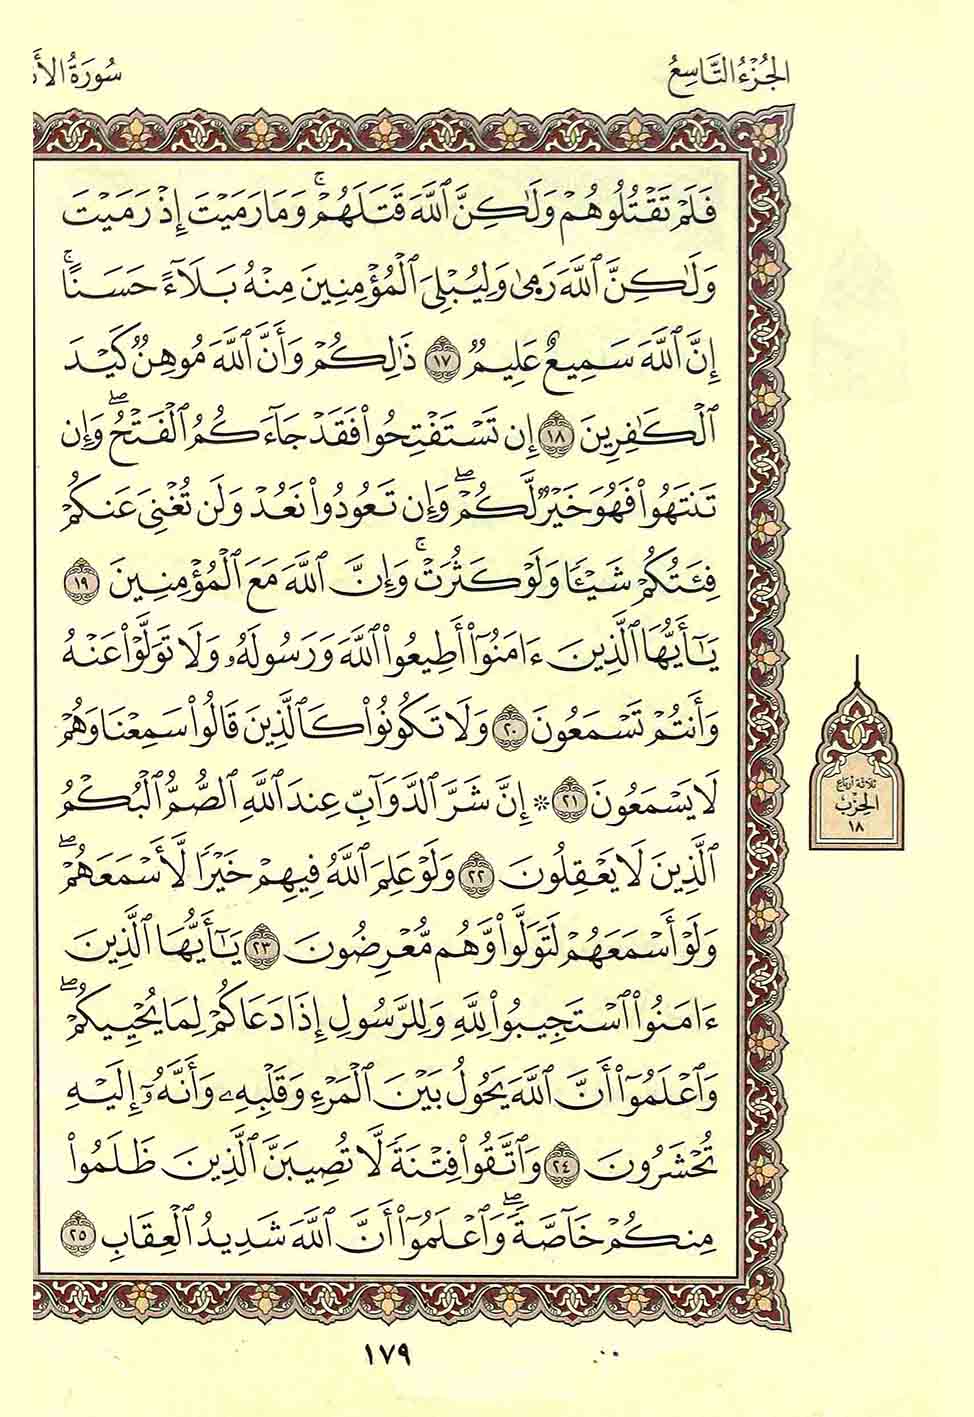 الجُزْءُ التَّاسِعُ
سُورَةُ الأَ
فَلَمْ تَقْتُلُوهُمْ وَلَٰكِنَّ ٱللَّهَ قَتَلَهُمْۚ وَمَا رَمَيْتَ إِذْ رَمَيْتَ
وَلَٰكِنَّ ٱللَّهَ رَمَىٰ وَلِيُبْلِىَ ٱلْمُؤْمِنِينَ مِنْهُ بَلَآءً حَسَنًاۚ
إِنَّ ٱللَّهَ سَمِيعٌ عَلِيمٌ ١٧ ذَٰلِكُمْ وَأَنَّ ٱللَّهَ مُوهِنُ كَيْدَ
ٱلْكَٰفِرِينَ ١٨ إِن تَسْتَفْتِحُوا۟ فَقَدْ جَآءَكُمُ ٱلْفَتْحُۖ وَإِن
تَنتَهُوا۟ فَهُوَ خَيْرٌ لَّكُمْۖ وَإِن تَعُودُوا۟ نَعُدْ وَلَن تُغْنِىَ عَنكُمْ
فِئَتُكُمْ شَيْـًٔا وَلَوْ كَثُرَتْۚ وَإِنَّ ٱللَّهَ مَعَ ٱلْمُؤْمِنِينَ ١٩
يَٰٓأَيُّهَا ٱلَّذِينَ ءَامَنُوٓا۟ أَطِيعُوا۟ ٱللَّهَ وَرَسُولَهُۥ وَلَا تَوَلَّوْا۟ عَنْهُ
وَأَنتُمْ تَسْمَعُونَ ٢٠ وَلَا تَكُونُوا۟ كَٱلَّذِينَ قَالُوا۟ سَمِعْنَا وَهُمْ
لَا يَسْمَعُونَ ٢١ ۞ إِنَّ شَرَّ ٱلدَّوَآبِّ عِندَ ٱللَّهِ ٱلصُّمُّ ٱلْبُكْمُ
ٱلَّذِينَ لَا يَعْقِلُونَ ٢٢ وَلَوْ عَلِمَ ٱللَّهُ فِيهِمْ خَيْرًا لَّأَسْمَعَهُمْۖ
وَلَوْ أَسْمَعَهُمْ لَتَوَلَّوا۟ وَّهُم مُّعْرِضُونَ ٢٣ يَٰٓأَيُّهَا ٱلَّذِينَ
ءَامَنُوا۟ ٱسْتَجِيبُوا۟ لِلَّهِ وَلِلرَّسُولِ إِذَا دَعَاكُمْ لِمَا يُحْيِيكُمْۖ
وَٱعْلَمُوٓا۟ أَنَّ ٱللَّهَ يَحُولُ بَيْنَ ٱلْمَرْءِ وَقَلْبِهِۦ وَأَنَّهُۥٓ إِلَيْهِ
تُحْشَرُونَ ٢٤ وَٱتَّقُوا۟ فِتْنَةً لَّا تُصِيبَنَّ ٱلَّذِينَ ظَلَمُوا۟
مِنكُمْ خَآصَّةًۖ وَٱعْلَمُوٓا۟ أَنَّ ٱللَّهَ شَدِيدُ ٱلْعِقَابِ ٢٥
ثلاثة أرباع
الحِزْب
١٨
١٧٩